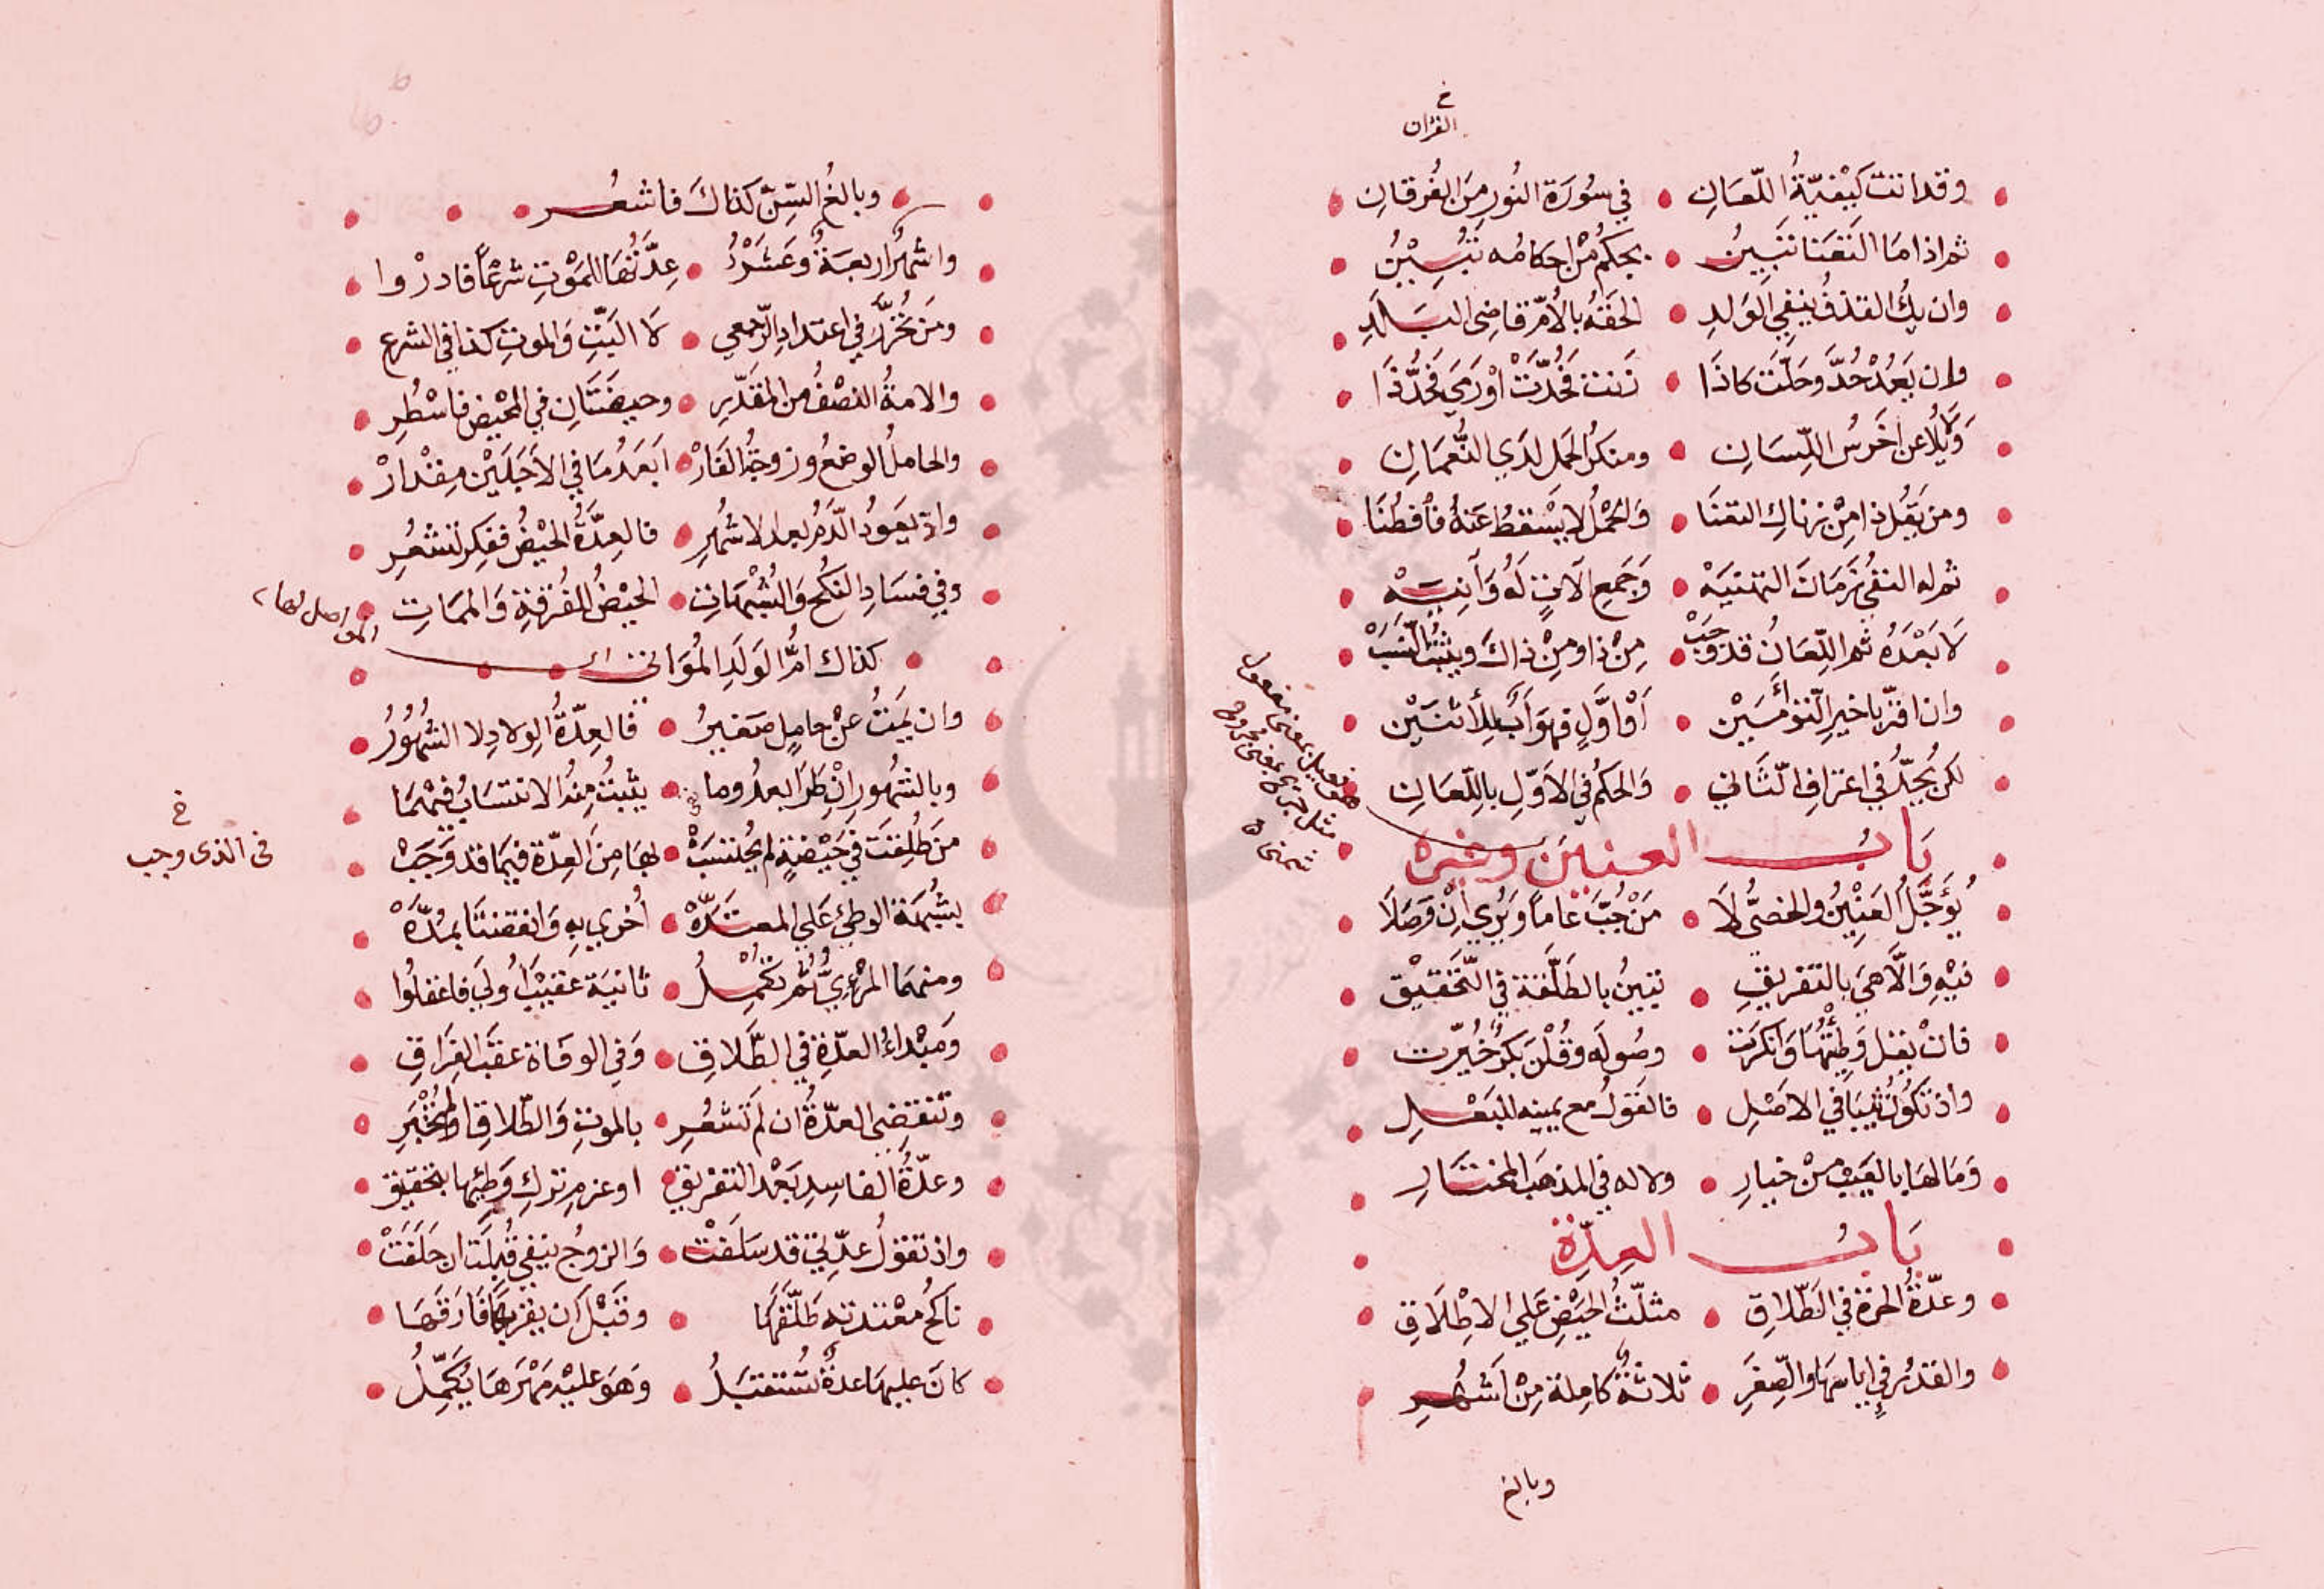 خ
القرآن
وقد اتت كيفيّةُ اللّعانِ • في سُورَة النُورِ مِنَ الفُرقانِ
ثم اذا ما التعنا تبينُ • بحكمٍ مِنْ احكامُه تَبْيِيْنُ
وان يكُ القذفُ بنفي الوَلدِ • الحَقَهُ بالأُمّ قاضى البَلَدِ
وان يَعُدْ حُدَّ وحَلّتْ كاذَا • زنت فحُدّتْ اوْ رَمَى فحُدَّ ذَا
وَلَا يُلاعن اخرَسُ اللّسَانِ • ومنكرُ الحَمل لَدَي النُّعمَانِ
ومن يَقُل ذا مِنْ زناكِ التعَنَا • وَالحَمْلُ لا يَسْقطُ عَنهُ فأفطُنَا
ثم له النفيُ زَمَانَ التهنيَهْ • وَجَمعِ الاتٍ لَهُ وَآنِيَهْ
لَا بَعْدَهُ ثم اللّعَانُ قد وَجَبْ • مِنْ ذا ومِنْ ذاكَ ويثبتُ النَّسَبْ
وان اقرّ باخيرِ التّوْأمَيْن • أَوْ اوَّلٍ فهوَ ابٌ للأثنَيْن
لكن يُحَدُّ في اعتراف الثَّاني • وَالحكمُ في الاَوّلِ باللّعَانِ
هو فعيل بمعنى مفعول
مثل جريح بمعنى مجروح
شمنى
بَابُ العنين وغيره
يُؤَجَّلُ العِنِّيْنُ والخصىُّ لَا • مَنْ جُبَّ عاماً وَيُرى اِنْ وَصَلاَ
فيهِ وَالَّا هيَ بالتفريقِ • تبينُ بالطَلْقة في التَّحَقيْق
فانْ يقل وَطِئْتُهَا وَانكرَت • وصُولَه وقُلْنَ بكرٌ خُيِّرت
واذ تكوُنُ ثيّباً في الاصْلِ • فالقَولُ مع يمينه للبَعْلِ
وَمَا لهَا بالعَيبِ مِنْ خيارِ • ولا له في المذهَب المختارِ
بَابُ العِدّة
وعدّةُ الحرة في الطّلاقِ • مثلّثُ الحَيْضِ عَلى الاطْلاَقِ
والقدْرُ في اياسهَا والصِّغَرِ • ثلاثةٌ كامِلة مِنْ اَشْهُرِ
وبالغ
وبالغُ السِّنّ كذاكَ فاشعُر
واشهُرٌ اربعةٌ وعَشْرُ • عِدّتُهَا للمَوْتِ شرعًا فادرُوا
ومَن تُحَرَّر في اعتدادِ الرّجعي • لَا البَتِّ وَالموتِ كذا في الشرع
والامةُ النصْفُ من المقدّرِ • وحيضَتَانِ في المحْيض فاسْطُرِ
والحاملُ الوضعُ وزوجةُ الفَارّ • ابَعَدُ مَا في الاَجَلَيْن مِقْدارْ
واذ يعَودُ الدّمُ بعد الاشهُرِ • فالعِدّةُ الحَيْضُ ففكر تشعُرِ
وفي فسَادِ النكْح وَالشُبْهَاتِ • الحَيْضُ للفُرقةِ وَالممَاتِ
كذاك امُّ الوَلَدِ المُوَاتى
وان يَمتْ عنْ حاملٍ صَغيرُ • فالعِدّةُ الولادِ لا الشُهُوُرُ
وبالشهُور اِنْ طَرَا بعدُ وما • يثبتُ مِنهُ الانتسَابُ فيهْمَا
مَن طُلِقتَ في حَيْضةٍ لم يُحتسَبْ • بهَا مِنَ العِدّة فيمَا قد وَجَبْ
خ
فى الذى وجب
بشُبهَة الوطئِ عَلي المعتَدّهْ • أُخرى بهِ وَانقضتَا بمُدّهْ
ومنهمَا المَرْءِيُّ ثُم تكْمُلُ • ثانيَة عقيْبَ اُولَي فاعقلُوا
وَمَبْداءُ العدّةِ في الطَّلاقِ • وَفي الوفَاة عقبَ الفِرَاقِ
وتنقضِى العدّةُ ان لَم تَشعُرِ • بالموتِ وَالطّلاقِ او لم تُخْبَرِ
وعدّةُ الفاسِدِ بَعْد التفريقْ • او عزمِ تركِ وَطِئها بتحقيق
واذ تقولُ عدّتي قد سلَفتْ • وَالزوجُ ينفي قُبِلَتْ ان حَلَفَتْ
ناكحُ معْتدته طَلّقهَا • وقَبْلَ ان يقربهَا فَارَقَهَا
كانَ عليهَا عدةٌ تُستقبَلُ • وَهوَ عليْهِ مَهْرَهَا يُكَمِّلُ